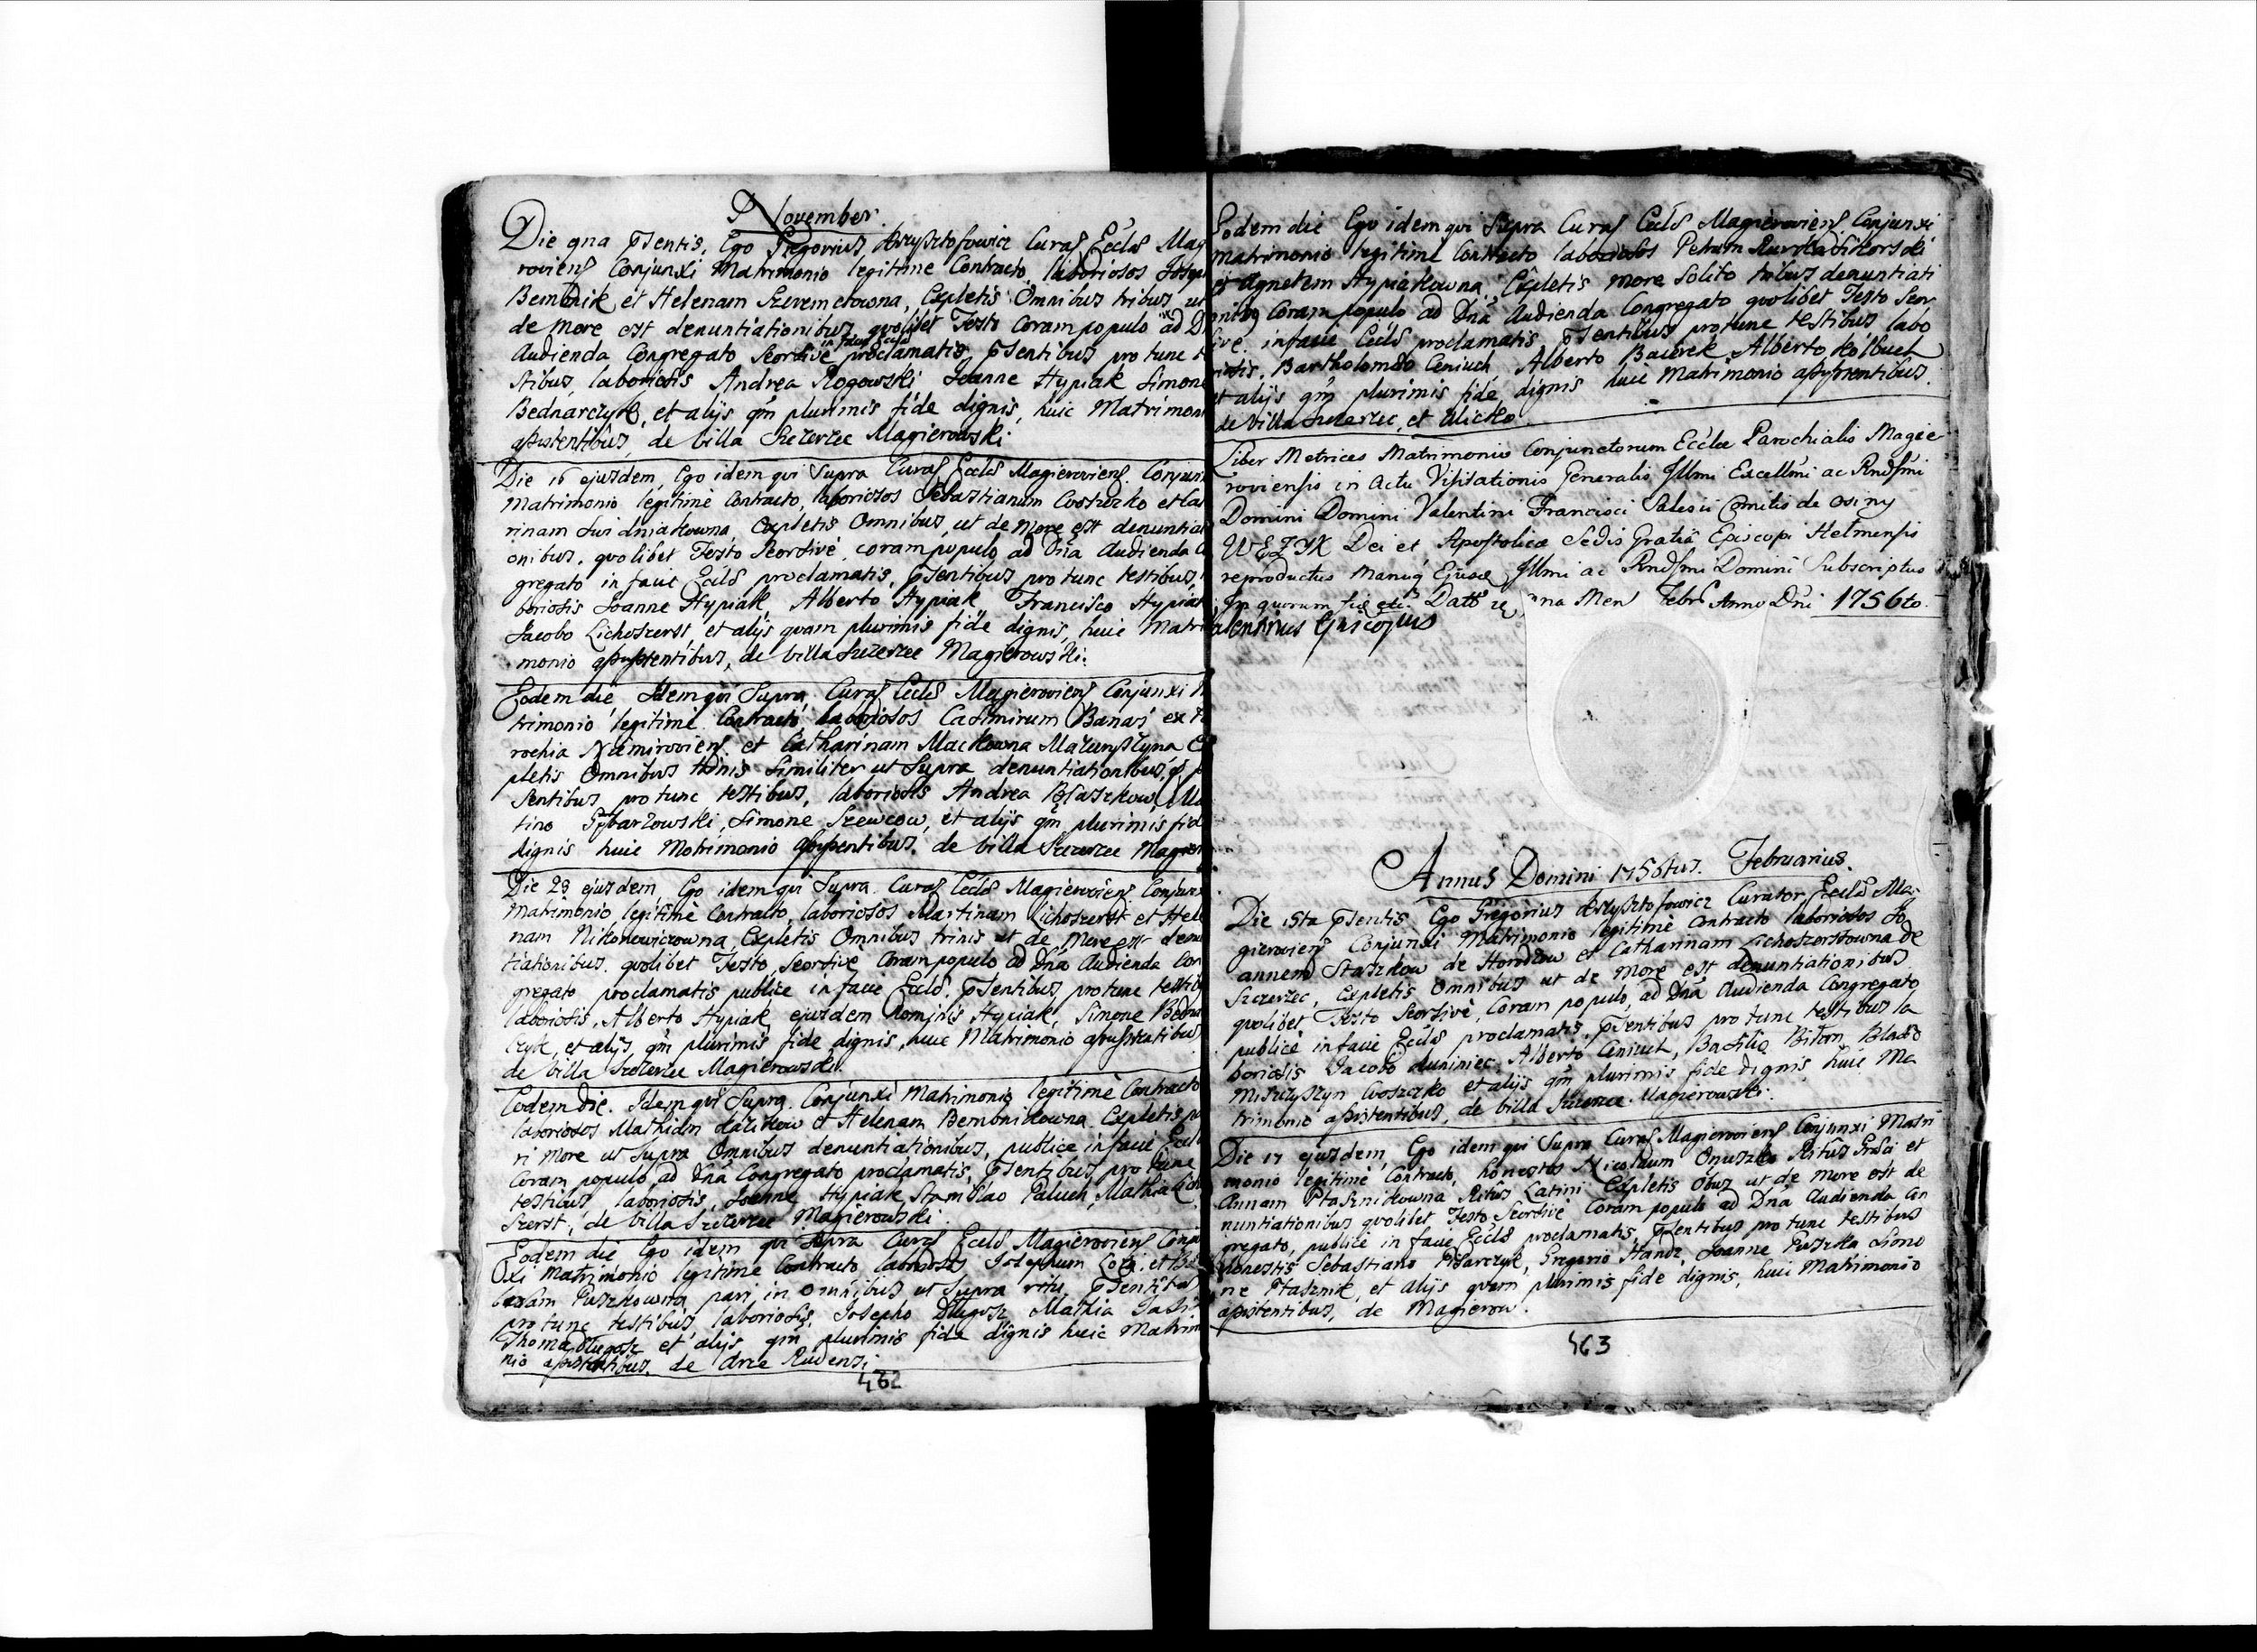 November
Die 9na Psentis, Ego Gregorius Krzysztofowicz Curat Eccls Mag
roviens Conjunxi Matrimonio legitime Contracto, laboriosos Josep
Bembnik et Helenam Szeremetowna, Expletis Omnibus tribus ut
de More est denuntiationibus quolibet Festo Coram populo ad D
in facie Eccls
Audienda Congregato Seorsive proclamatis Psentibus pro tunc te
stibus laboriosis Andrea Rogowski Joanne Hypiak Simone
Bednarczyk, et alijs qm plurimis fide dignis, huic Matrimon
assistentibus, de Villa Szczerzec Magierowski.
Die 16 ejusdem, Ego idem qui Supra Curat Eccls Magieroviens. Conjun
Matrimonio legitimè Contracto, laboriosos Sebastianum Cwoszczko et Cat
rinam Expletis Omnibus ut de More est denuntiati
onibus. quolibet Festo Seorsivè, coram populo ad Dña Audienda C
gregato in facie Eccls proclamatis, Psentibus pro tunc testibus,
boriosis Joanne Hypiak, Alberto Hypiak Francisco Hypiak
Jacobo Lichoszerst, et alijs quam plurimis fide dignis, huic Matri
monio assistentibus, de Villa Szczerzec Magierowski.
Eodem die Idem qui Supra Curat Eccls Magieroviens Conjunxi
trimonio legitimè Contracto laboriosos Casimirum Banaś ex Pa
rochia Niemiroviens. et Catharinam Mackowna
pletis Omnibus trinis Similiter ut Supra denuntiationibus,
sentibus pro tunc testibus, laboriosis Andrea Błaszkow,
tino Simone Szewcow, et alijs qm plurimis fid
dignis huic Motrimonio assistentibus. de villa Szczerzec Magier
Die 23 ejusdem Ego idem qui Supra. Curat Eccls Magieroviens Conjunx
Matrimonio legitimè Contracto, laboriosos Martinum Lichoszerst et Hele
nam Nikonowiczowna, Expletis Omnibus trinis ut de More est denu
tiationibus. quolibet Festo, Seorsivè Coram populo ad Dña Audienda Con
gregato proclamatis publice in facie Eccls. Psentibus, pro tunc testib
laboriosis, Alberto Hypiak, ejusdem Nominis Hypiak, Simone Bedna
czyk, et alijs, qm plurimis fide dignis, huic Matrimonio assistentibus
de Villa Szczerzec Magierowski.
Eodem die. Idem qui Supra. Conjunxi Matrimonio legitimè Contracto
laboriosos Mathiam Kazikow et Helenam Bembnikowna Expletis, pa
ri More ut Supra Omnibus denuntiationibus, publice in facie Eccls
Coram populo ad Dña Congregato proclamatis, Psentibus pro tunc
testibus laboriosis, Joanne Hypiak Stanislao Paluch, Mathia
szerst, de Villa Szczerzec Magierowski.
Eodem die Ego idem qui Supra Curat Eccls Magieroviens Conju
Oxi Matrimonio legitimè Contracto laboriosos Josephum et
Puszkowna pari in omnibus ut Supra ritu, Psentibus
pro tunc testibus laboriosis, Josepho Długosz Mathia
Thoma Długosz et alijs qm plurimis fide dignis huic Matrim
nio assistentibus. de Arce Rudensi.
462
Eodem die Ego idem qui Supra Curat Eccls Magieroviens Conjunxi
Matrimonio legitimè Contracto laboriosos Petrum Sikorski
et Agnetem Hypiakowna Expletis more Solito tribus denuntiati
onibus Coram populo ad Dña Audienda Congregato quolibet Festo Seor
sive. in facie Eccls proclamatis, Psentibus pro tunc testibus labo
riosis. Bartholomeo Ceniuch Alberto Alberto Kolbuch
et alijs qm plurimis fide, dignis huic Matrimonio assistentibus.
de Villa Szczerzec, et
Liber Metrices Matrimonio Conjunctorum Eccle Parochialis Magie
roviensis in Actu Visitationis Generalis Illmi Excellmi ac Rndsmi
Domini Domini Valentini Francisci Salesii Comitis de Osiny
WĘZYK Dei et Apostolicæ Sedis Gratiâ Episcopi Helmensis
reproductus Manuq Ejusd Illmi ac Rndsmi Domini Subscriptus
In quorum fid etc. Datt na Men Febri Anno Dni 1756to.
Valentinus Episcopus
Annus Domini 1756tus. Februarius.
Die 15ta Psentis Ego Gregorius Krzysztofowicz Curator Eccls Ma-
gieroviens Conjunxi Matrimonio legitimè Contracto laboriosos Jo
annem Staszkow de Horodzow et Catharinam Lichoszerstowna de
Szczerzec, Expletis Omnibus ut de More est denuntiationibus
quolibet Festo Seorsivè, Coram populo, ad Dña Audienda Congregato
publicè in facie Eccls proclamatis, Psentibus pro tunc testibus la
boriosis Jacobo Alberto Ceniuch, Basilio
Cwoszczko et alijs qm plurimis fide dignis, huic Ma
trimonio assistentibus, de Villa Szczerzec Magierowski.
Die 17 ejusdem, Ego idem qui Supra Curat Magieroviens Conjunxi Matri
monio legitimè Contracto, honestos Nicolaum Onuszko Ritus Græci et
Annam Ptasznikowna Ritus Latini Expletis Oibus ut de More est de
nuntiationibus quolibet Festo Seorsivè Coram populo ad Dña Audienda Con
gregato, publice in facie Eccls proclamatis, Psentibus pro tunc testibus
honestis Sebastiano Pisarczyk, Gregorio Joanne Puszka Simo
ne Ptasznik, et alijs quam plurimis fide dignis, huic Matrimonio
assistentibus, de Magierow.
463